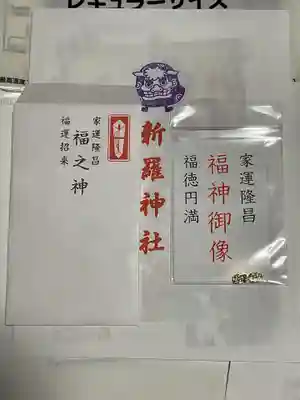 レギュラーサイズ
家運隆昌
福之神
福運招来
新羅神社
家運隆昌
福神御像
福徳円満